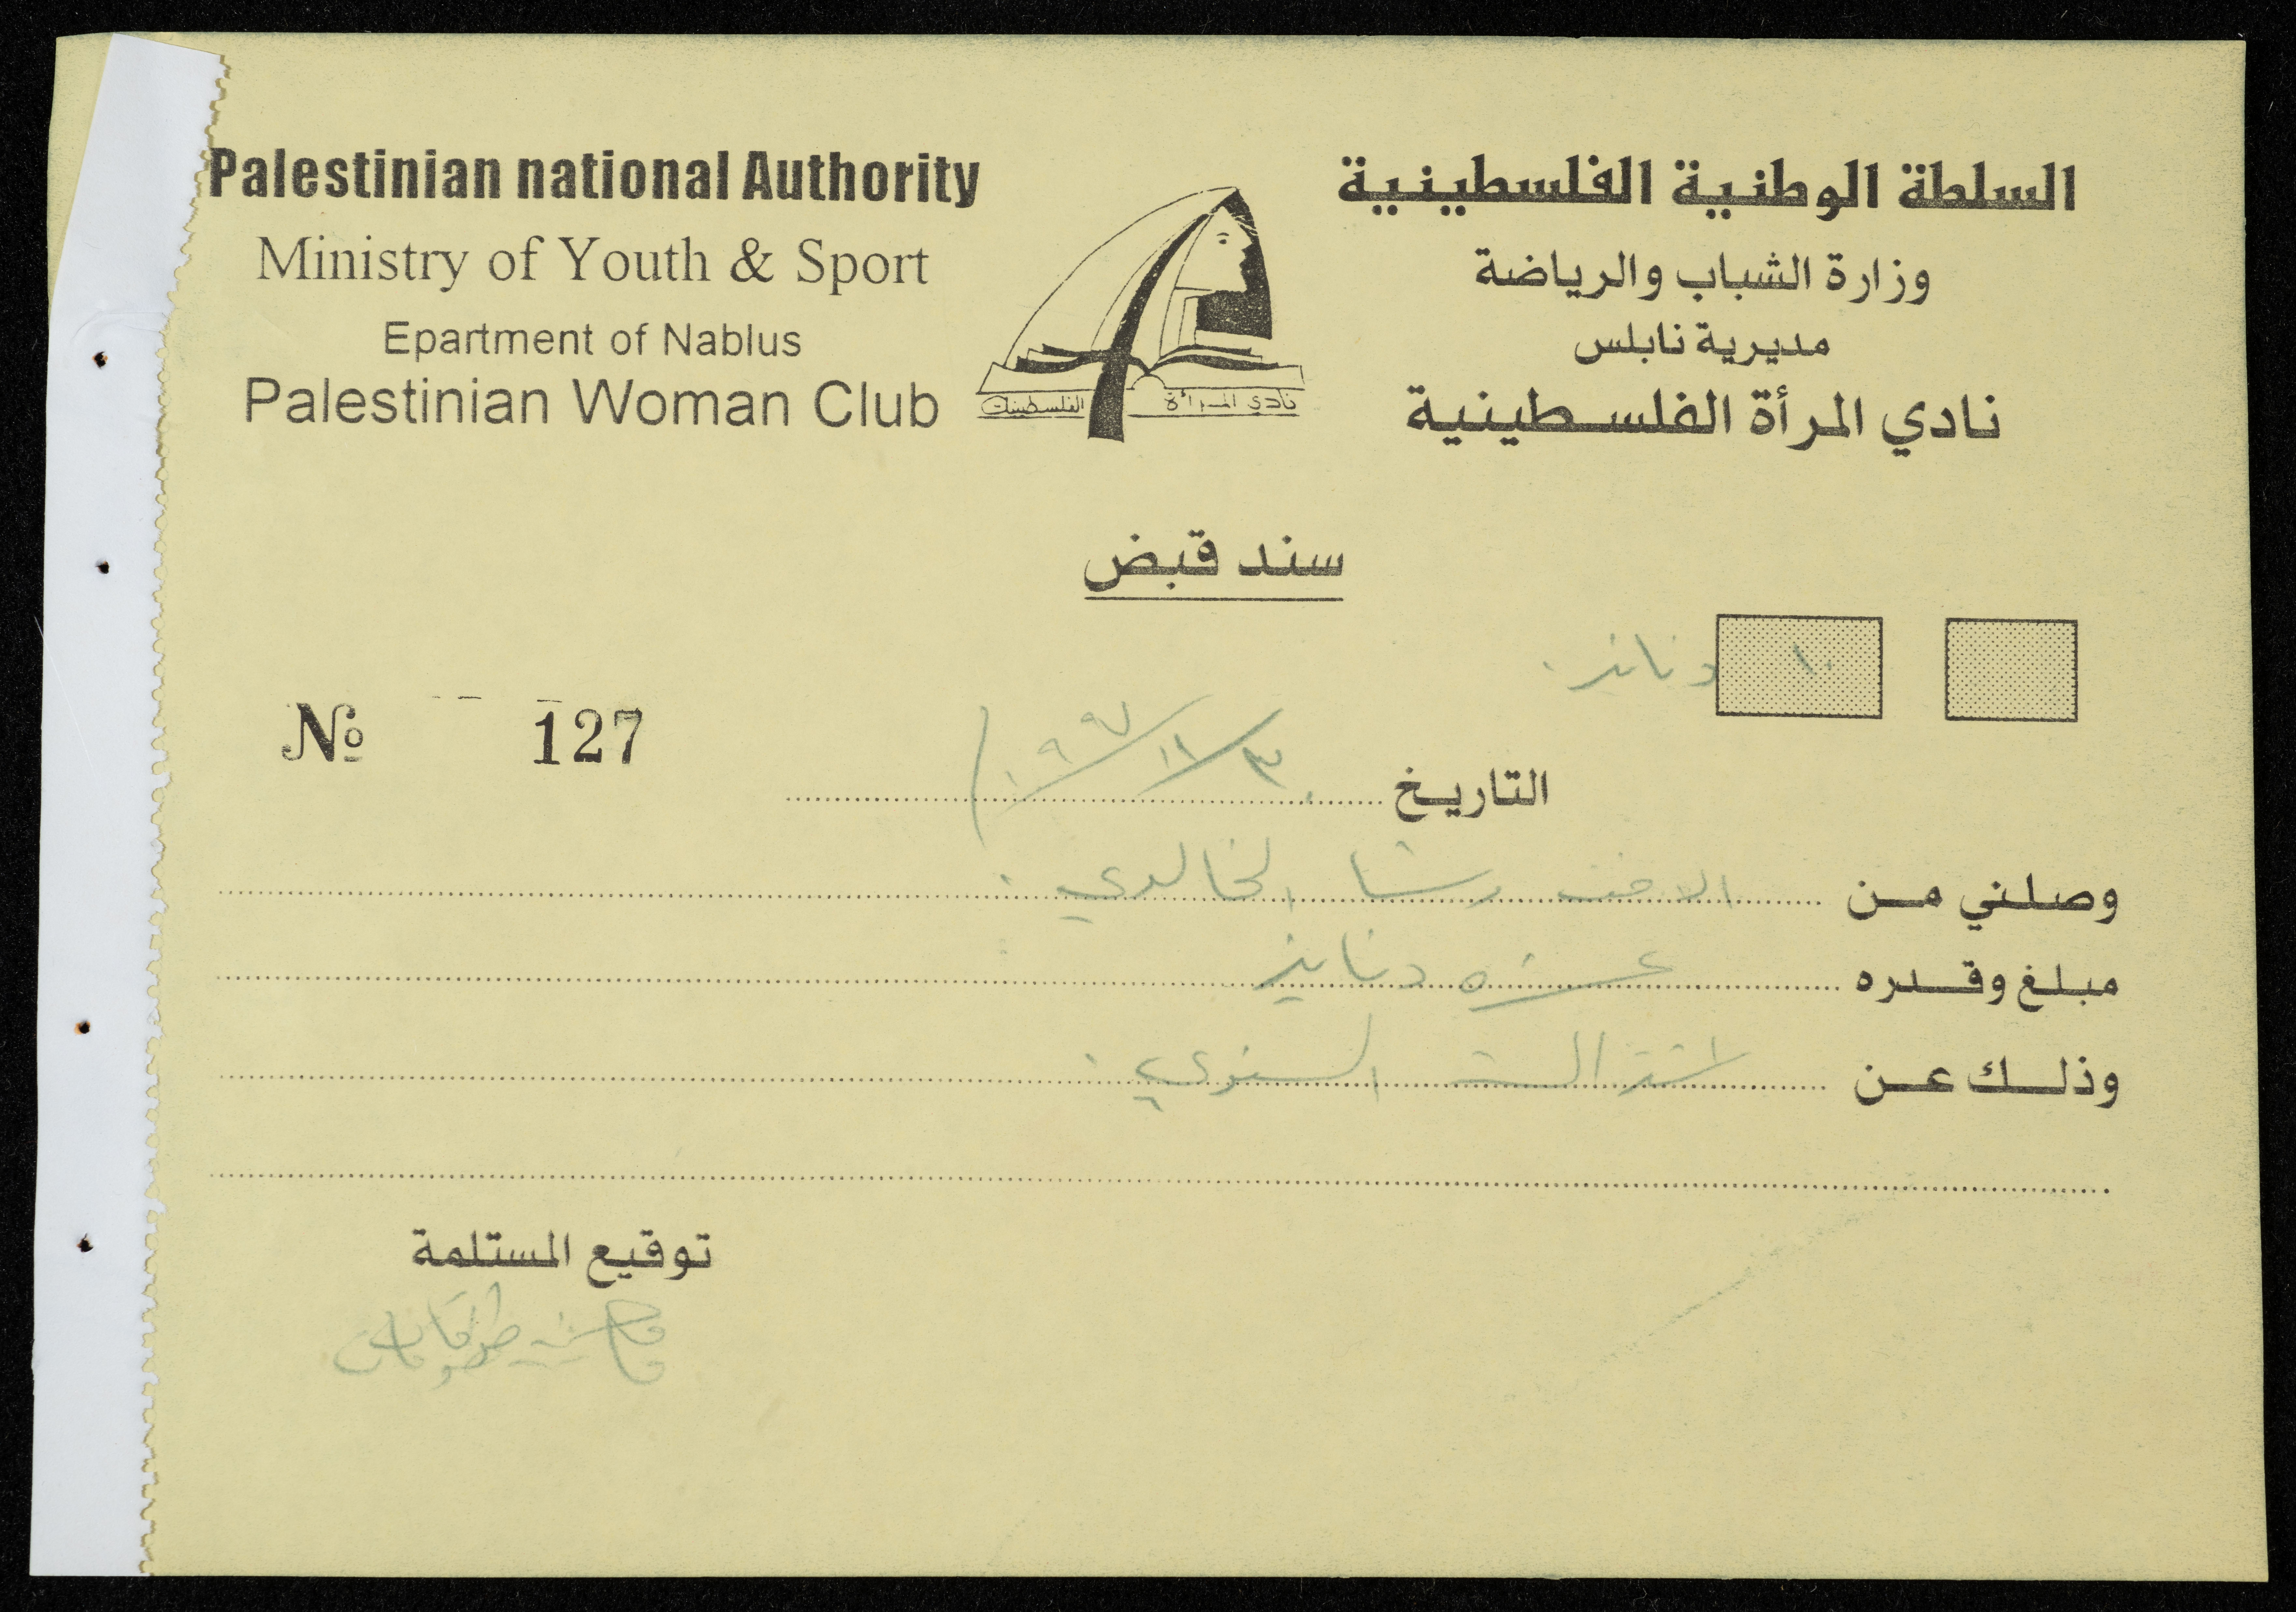 Palestinian national Authority
Ministry of Youth & Sport
Epartment of Nablus
Palestinian Woman Club
السلطة الوطنية الفلسطينية
وزارة الشباب والرياضة
مديرية نابلس
نادي المرأة الفلسطينية
نادي المرأة الفلسطينية
سند قبض
١٠ دنانير
№ 127
التاريخ ٣٠/١١/١٩٩٧
وصلني من الاخت رشا الخالدي
مبلغ وقدره عشرة دنانير
وذلك عن اشتراك السنوي
توقيع المستلمة
طوقان